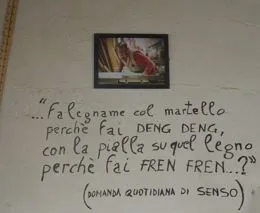 "...Falegname col martello
perchè fai DENG DENG,
con la pialla su quel legno
perchè fai FREN FREN...?"
(DOMANDA QUOTIDIANA DI SENSO)